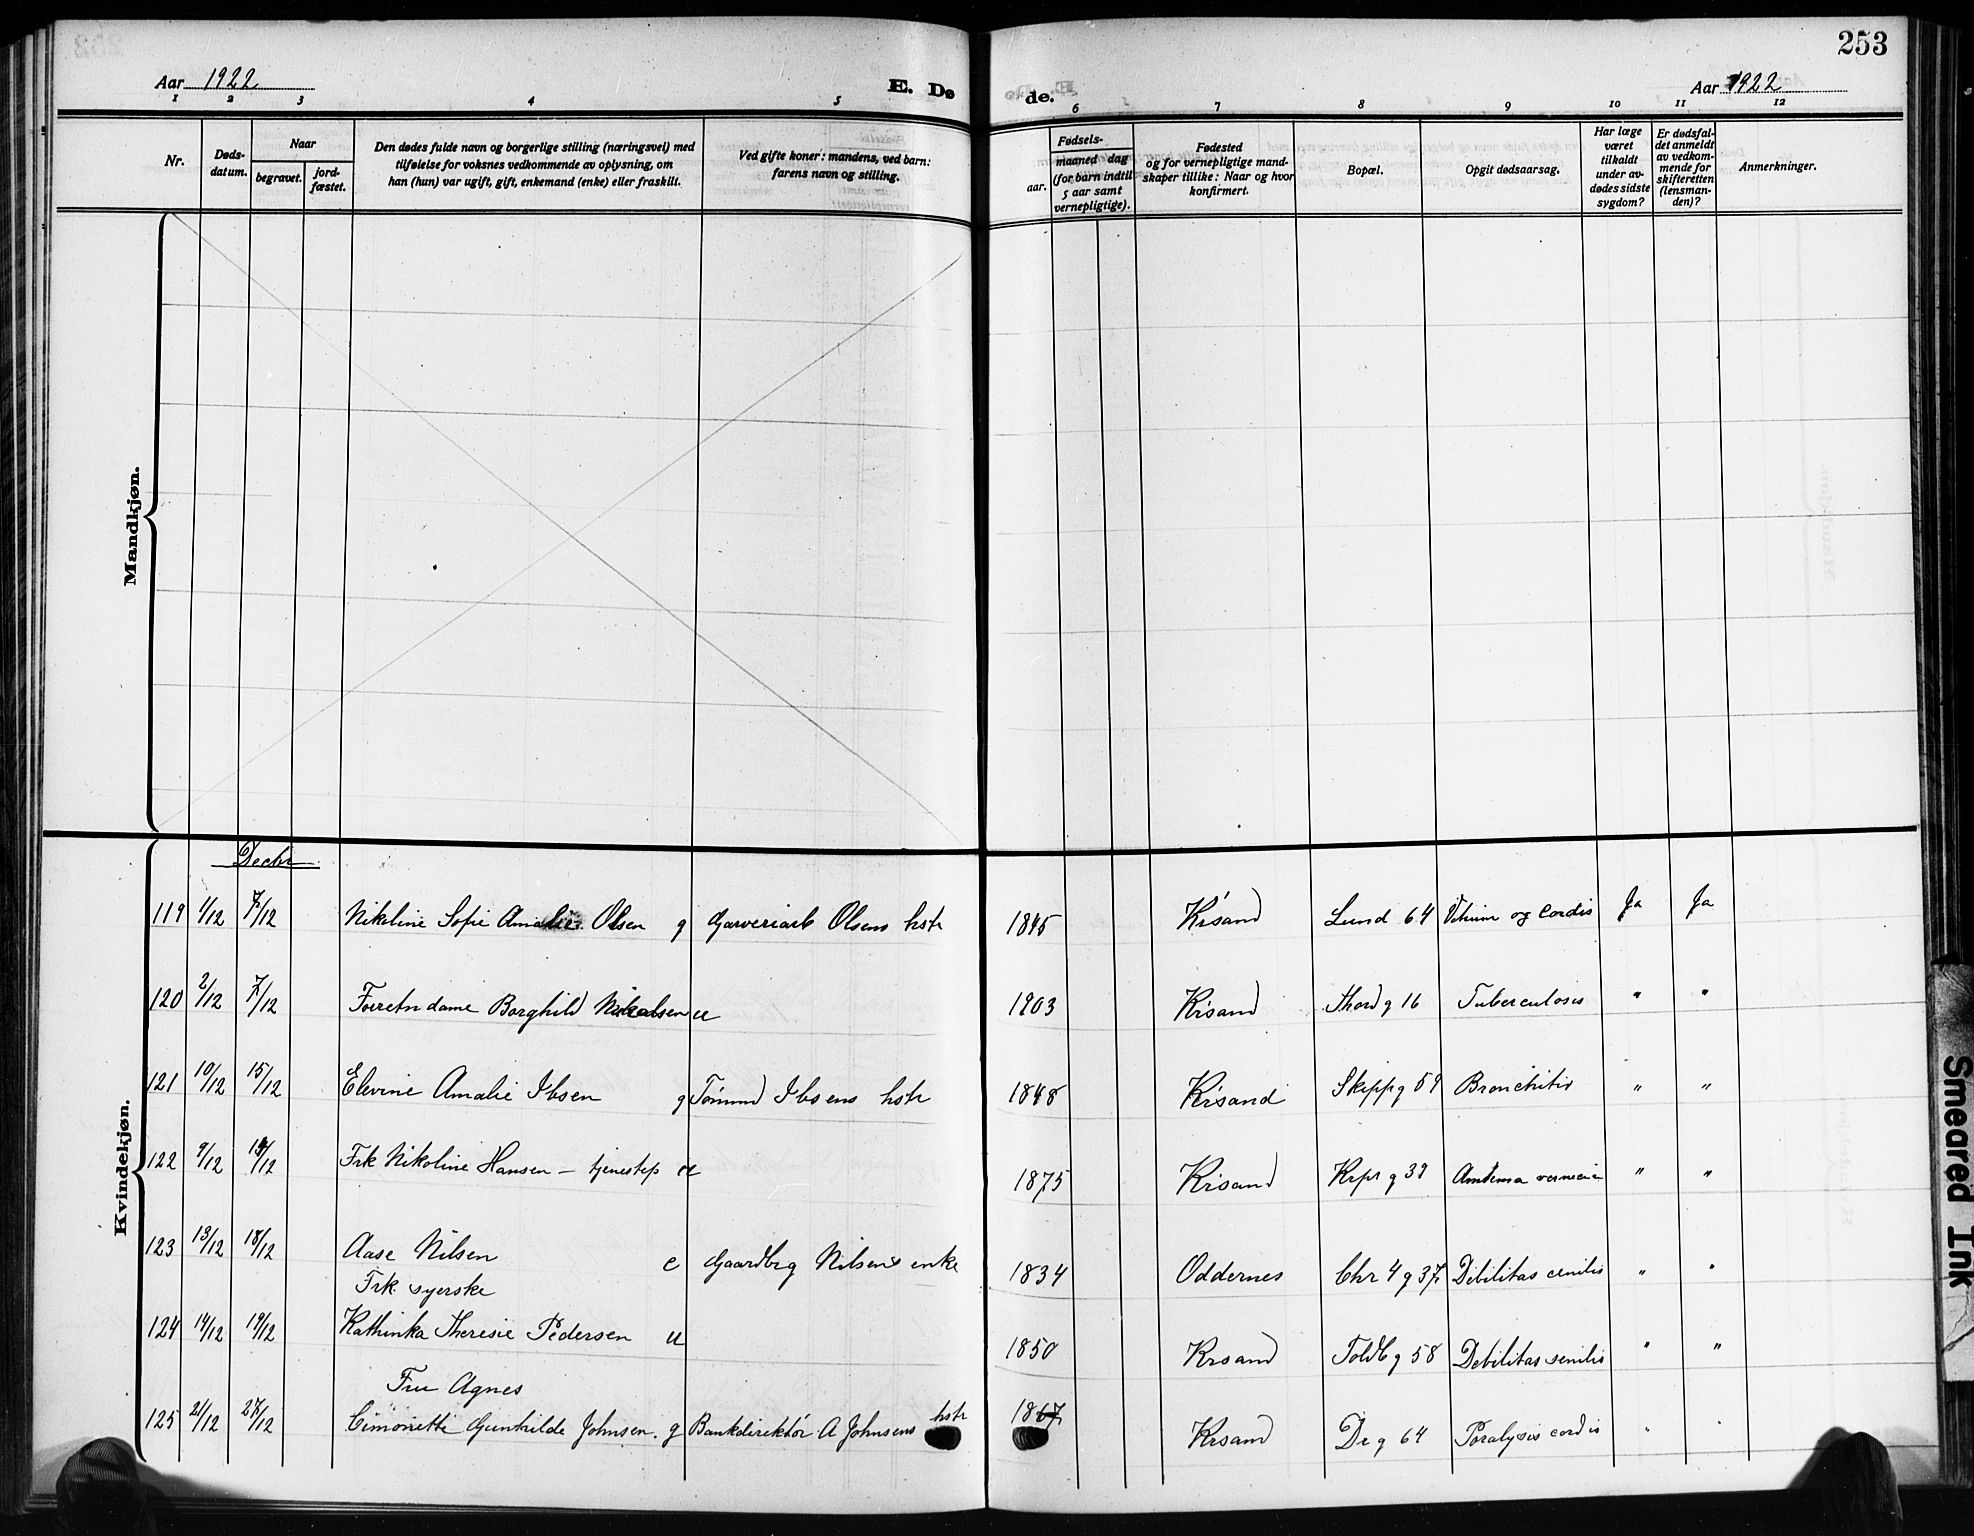 253
Aar 1922
E. Dø
de.
Aar 1922
1 2 3 4 5 6 7 8 9 10 11 12
Nr.
Døds-
datum.
Naar
begravet.
jord-
fæstet.
Den dødes fulde navn og borgerlige stilling (næringsvei) med
tilføielse for voksnes vedkommende av oplysning, om
han (hun) var ugift, gift, enkemand (enke) eller fraskilt.
Ved gifte koner: mandens, ved barn:
farens navn og stilling.
Fødsels-
aar.
maaned dag
(for barn indtil
5 aar samt
vernepligtige).
Fødested
og for vernepligtige mand-
skaper tillike: Naar og hvor
konfirmert.
Bopæl.
Opgit dødsaarsag.
Har læge
været
tilkaldt
under av-
dødes sidste
sygdom?
Er dødsfal-
det anmeldt
av vedkom-
mende for
skifteretten
(lensman-
den)?
Anmerkninger.
Mandkjøn.
Kvindekjøn.
Decbr
119 1/12 7/12 Nikoline Sofie Amalie Olsen g Garveriarb Olsens hstr 1845 Krsand Lund 64 Vitium og Cordis Ja Ja
120 2/12 7/12 Forretn dame Borghild Nikolalsen u 1903 Krsand Thord g 16 Tuberculosis " "
121 10/12 15/12 Elevine Amalie Ibsen g Tømmd Ibsens hstr 1848 Krsand Skippg 59 Bronchitis " "
122 9/12 14/12 Frk Nikoline Hansen – tjenestep u 1875 Krsand Krpr g 39 " "
123 13/12 18/12 Aase Nilsen e Gaardbrg Nilsens enke 1834 Oddernes Chr 4 g 37 Debilitas cenilis " "
Frk. syerske
124 14/12 19/12 Kathinka Theresie Pedersen u 1850 Krsand Toldb g 58 Debilitas senilis " "
Fru Agnes
125 21/12 27/12 Cimonette Gunhilde Johnsen. g Bankdirektør A Johnsens hstr 1867 Krsand Dr g 64 Paralysis cordis "
Smeared Ink